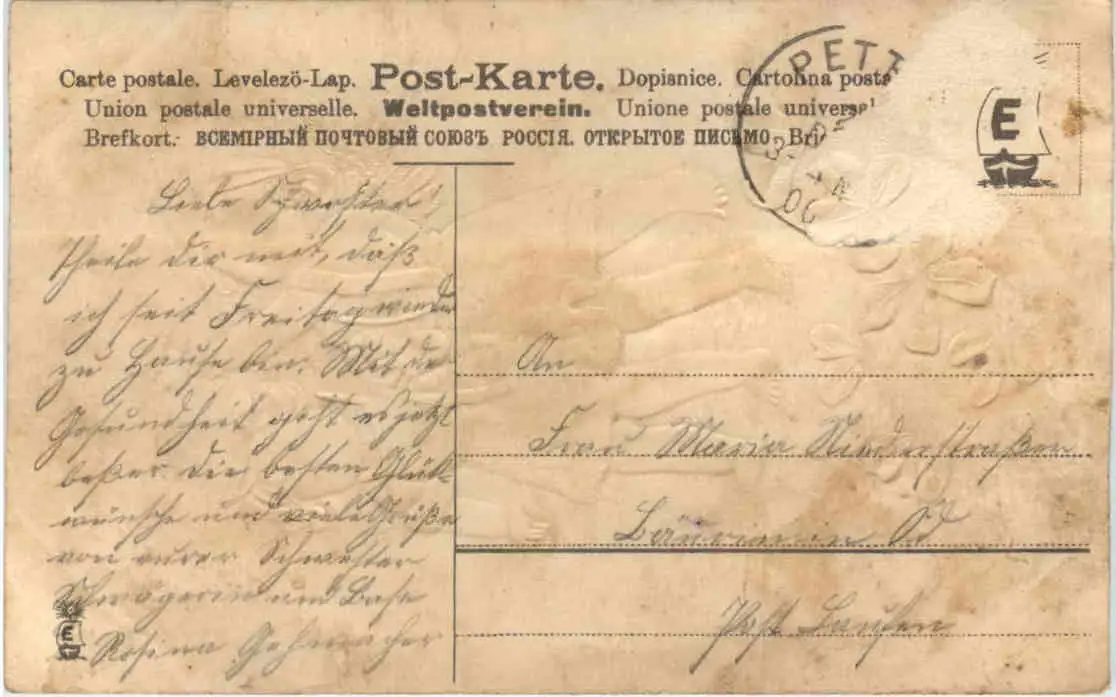 Carte postale. Levelezö-Lap. Post-Karte. Dopisnice. Cartolina posta
Union postale universelle. Weltpostverein. Unione postale universal
Brefkort. ВСЕМІРНЫЙ ПОЧТОВЫЙ СОЮЗЪ РОССІЯ. ОТКРЫТОЕ ПИСЬМО Bri
PETT
E
Liebe Schwester!
Theile dir mit, daß
ich seit Freitag wieder
zu Hause bin. Mit der
Gesundheit geht es jetzt
beßer. Die besten Glück-
wünsche und viele Grüße
von eurer Schwester
Schwägerin und Base
Rosina Gehmacher
E
An
Frau Maria Niederstraßer
Bäuerin
Post Laufen